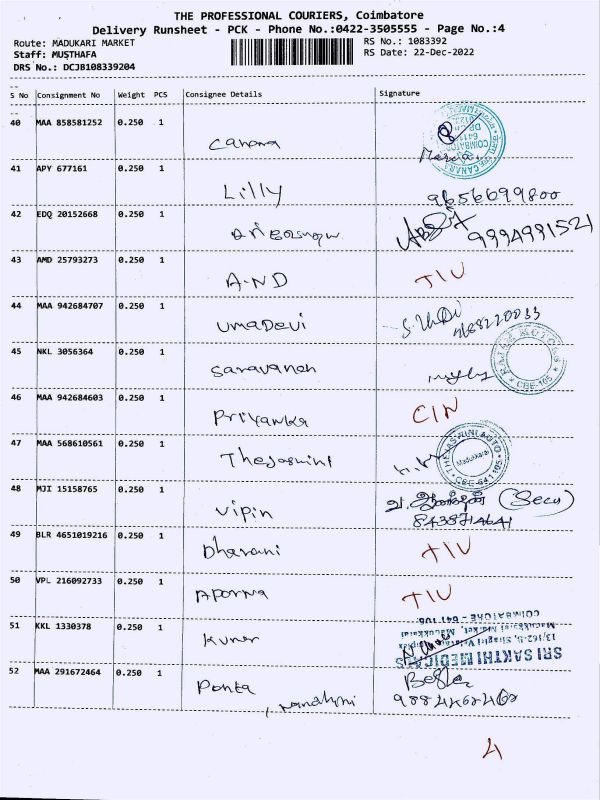 THE PROFESSIONAL COURIERS, Coimbatore
Delivery Runsheet - PCK - Phone No.:0422-3505555 - Page No.:4
Route: MADUKARI MARKET RS No.: 1083392
Staff: MUSTHAFA RS Date: 22-Dec-2022
DRS No.: DCJB108339204
S No Consignment No Weight PCS Consignee Details Signature
40 MAA 858581252 0.250 1
Canara
41 APY 677161 0.250 1
Lilly 9656699800
42 EDQ 20152668 0.250 1
9994991521
43 AMD 25793273 0.250 1
A.ND TIU
44 MAA 942684707 0.250 1
UmaDevi
45 NKL 3056364 0.250 1
Saravanan
CBE-105
46 MAA 942684603 0.250 1
Priyanka CIN
47 MAA 568610561 0.250 1
Thejasmini
THEJASWINI AUTO Madukkarai CBE-641 105
48 MJI 15158765 0.250 1
Vipin
8438714641
49 BLR 4651019216 0.250 1
Dharani TIU
50 VPL 216092733 0.250 1
Aporna TIU
51 KKL 1330378 0.250 1
Kumar
SRI SAKTHI MEDICALS
COIMBATORE - 641 105
52 MAA 291672464 0.250 1
Ponta
4